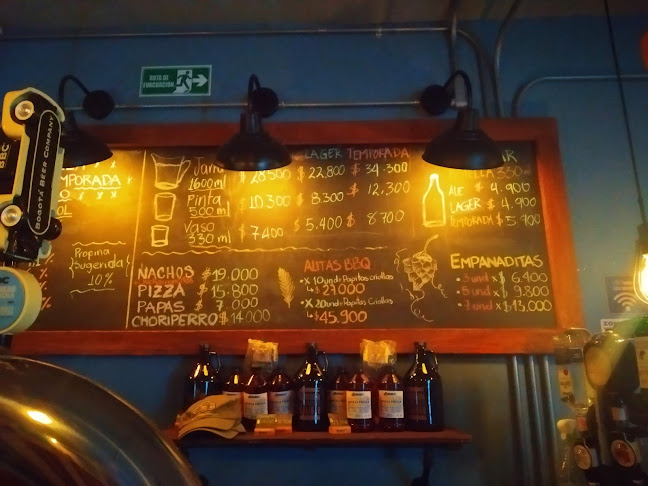 RUTA DE
EVACUACIÓN
BBC
BOGOTÁ BEER COMPANY
TEMPORADA
Propina
Sugerida
10%
LAGER TEMPORADA
1600ml $ 22,800 $ 34.300
Pinta
500ml $ 10.300 $ 8.300 $ 12,300
Vaso
330ml $ 7.400 $ 5.400 $ 8.700
330ml
ALE $ 4.900
LAGER $ 4.900
TEMPORADA $ 5.900
NACHOS $ 19.000
PIZZA $ 15.800
PAPAS $ 7.000
CHORIPERRO $ 14.000
ALITAS BBQ
× 10und + Papitas criollas
$ 29.000
× 20und + Papitas Criollas
$ 45.900
EMPANADITAS
3 und × $ 6.400
5 und × $ 9.800
und × $ 13.000